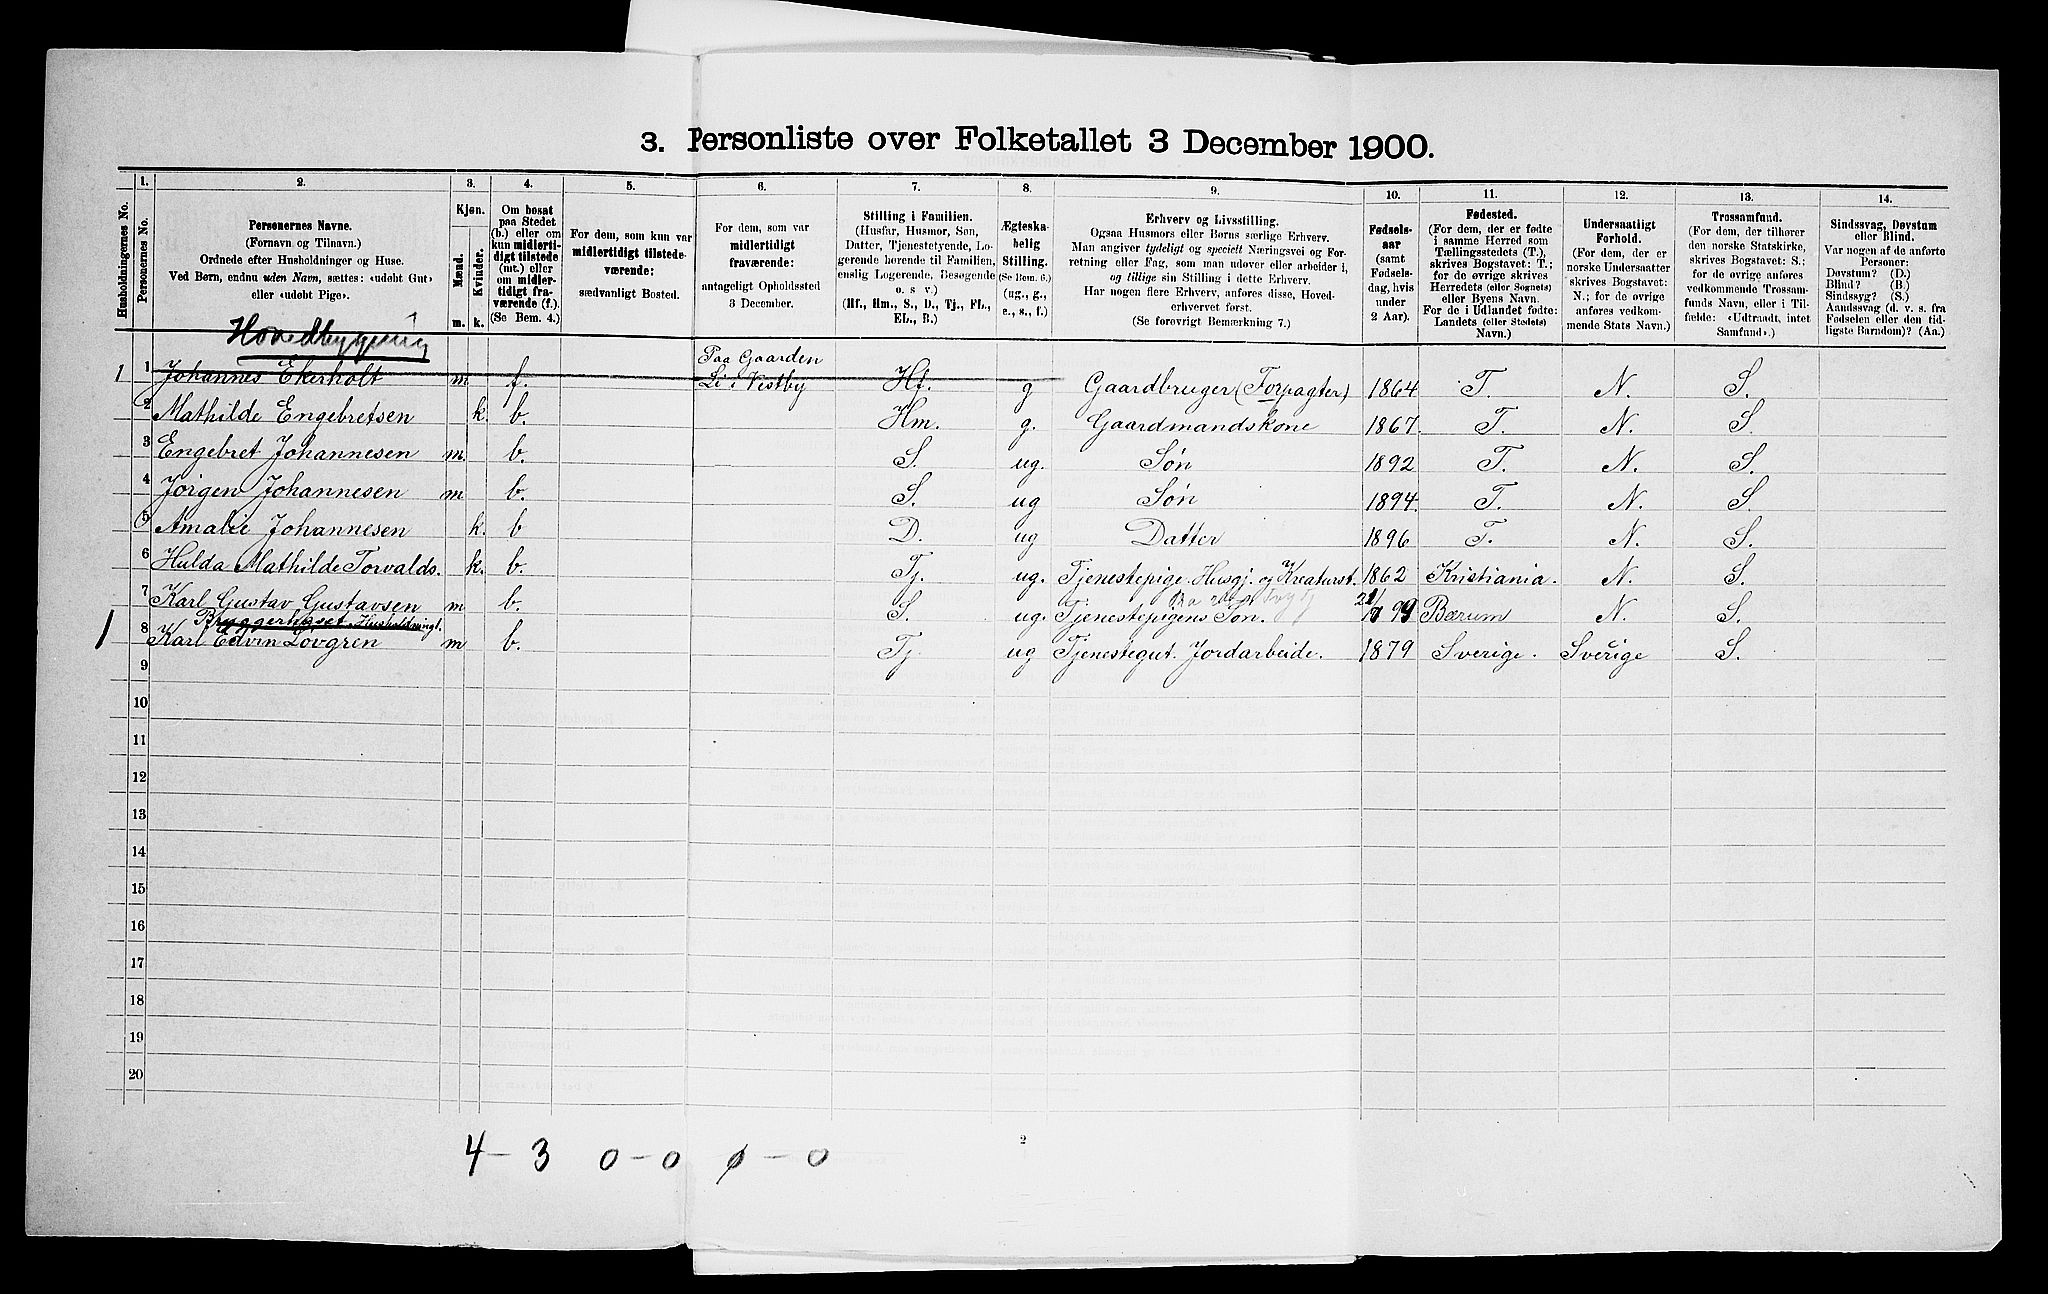 3. Personliste over Folketallet 3 December 1900.
Husholdningernes No.
1. Personernes No.
2. Personernes Navne.
(Fornavn og Tilnavn.)
Ordnede efter Husholdninger og Huse.
Ved Børn, endnu uden Navn, sættes: «udøbt Gut»
eller «udøbt Pige».
3. Kjøn.
Mænd. m.
Kvinder. k.
4. Om bosat
paa Stedet
(b.) eller om
kun midlerti-
digt tilstede
(mt.) eller
om midler-
tidigt fra-
værende (f.)
(Se Bem. 4.)
5. For dem, som kun var
midlertidigt tilstede-
værende:
sædvanligt Bosted.
6. For dem, som var
midlertidigt
fraværende:
antageligt Opholdssted
3 December.
7. Stilling i Familien.
(Husfar, Husmor, Søn,
Datter, Tjenestetyende, Lo-
gerende hørende til Familien,
enslig Logerende, Besøgende
o. s. v.)
(Hf., Hm., S., D., Tj., FL.,
EL., B.)
8. Ægteska-
belig
Stilling.
(Se Bem. 6.)
(ug., g.,
e., s., f.)
9. Erhverv og Livsstilling.
Ogsaa Husmors eller Børns særlige Erhverv.
Man angiver tydeligt og specielt Næringsvei og For-
retning eller Fag, som man udøver eller arbeider i,
og tillige sin Stilling i dette Erhverv.
Har nogen flere Erhverv, anføres disse, Hoved-
erhvervet først.
(Se forøvrigt Bemærkning 7.)
10. Fødsels-
aar
(samt
Fødsels-
dag, hvis
under
2 Aar).
11. Fødested.
(For dem, der er fødte
i samme Herred som
Tællingsstedets (T.),
skrives Bogstavet: T.;
for de øvrige skrives
Herredets (eller Sognets)
eller Byens Navn.
For de i Udlandet fødte:
Landets (eller Stedets)
Navn.)
12. Undersaatligt
Forhold.
(For dem, der er
norske Undersaatter
skrives Bogstavet:
N.; for de øvrige
anføres vedkom-
mende Stats Navn.)
13. Trossamfund.
(For dem, der tilhører
den norske Statskirke,
skrives Bogstavet: S.;
for de øvrige anføres
vedkommende Trossam-
funds Navn, eller i Til-
fælde: «Udtraadt, intet
Samfund».)
14. Sindssvag, Døvstum
eller Blind.
Var nogen af de anførte
Personer:
Døvstum? (D.)
Blind? (B.)
Sindssyg? (S.)
Aandssvag (d. v. s. fra
Fødselen eller den tid-
ligste Barndom)? (Aa.)
Hovedbygning
1 1 Johannes Ekerholt m f. Paa Gaarden Li i Vestby Hf. g Gaardbruger (Forpagter) 1864 T. N. S.
2 Mathilde Engebretsen k. b. Hm. g. Gaardmandskone 1867. T. N. S.
3 Engebret Johannesen m. b. S. ug. Søn 1892 T. N. S.
4 Jørgen Johannesen m b. S. ug Søn 1894. T. N. S.
5 Amalie Johannesen k. b D. ug Datter 1896 T. N. S.
6 Hulda Mathilde Torvalds. k. b. Tj. ug. Tjenestepige. Husgj. og Kreaturst. 1862 Kristiania. N. S.
7 Karl Gustav Gustavsen m b. S. ug. Tjenestepigens Søn. 99 Bærum N. S.
Bryggerhuset
1 8 Karl Edvin Løvgren m b. Tj. ug Tjenestegut. Jordarbeide. 1879 Sverige. Sverige S.
9
10
11
12
13
14
15
16
17
18
19
20
2
4 - 3 0 - 0 0 - 0